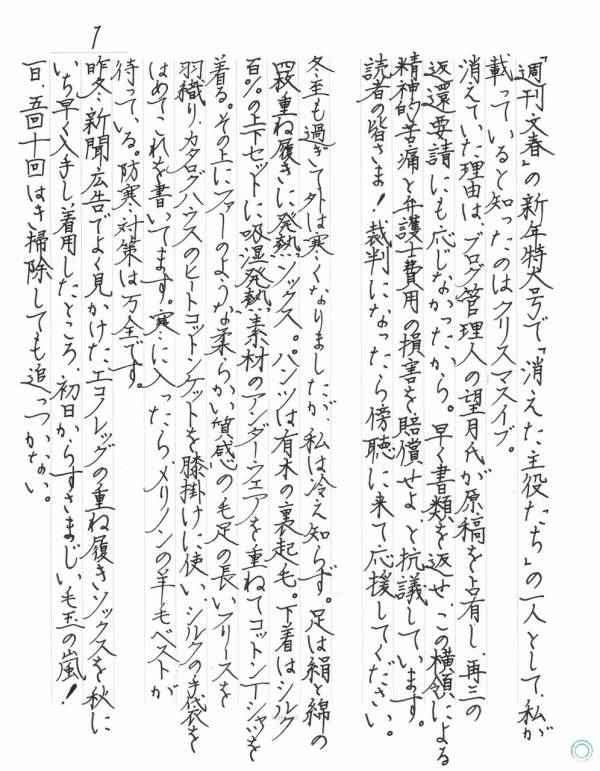 1
「週刊文春」の新年特大号で「消えた主役たち」の一人として、私が
載っていると知ったのはクリスマスイブ。
消えていた理由は、ブログ管理人の望月氏が原稿を占有し、再三の
返還要請にも応じなかったから。早く書類を返せ、この横領による
精神的苦痛と弁護士費用の損害を賠償せよ、と抗議しています。
読者の皆さま！裁判になったら傍聴に来て応援してください。
冬至も過ぎて外は寒くなりましたが、私は冷え知らず。足は絹と綿の
四枚重ね履きに発熱ソックス。パンツは有木の裏起毛。下着はシルク
百%の上下セットに吸湿発熱素材のアンダーウェアを重ねてコットンTーシャツを
着る。その上にファーのような柔らかい質感の毛足の長いフリースを
羽織り、カタログハウスのヒートコットンケットを膝掛けに使い、シルクの手袋を
はめてこれを書いてます。寒に入ったらメリノンの羊毛ベストが
待っている。防寒対策は万全です。
昨冬、新聞広告でよく見かけたエコノレッグの重ね履きソックスを秋に
いち早く入手し、着用したところ、初日からすさまじい毛玉の嵐！
一日、五回十回はき掃除しても追っつかない。